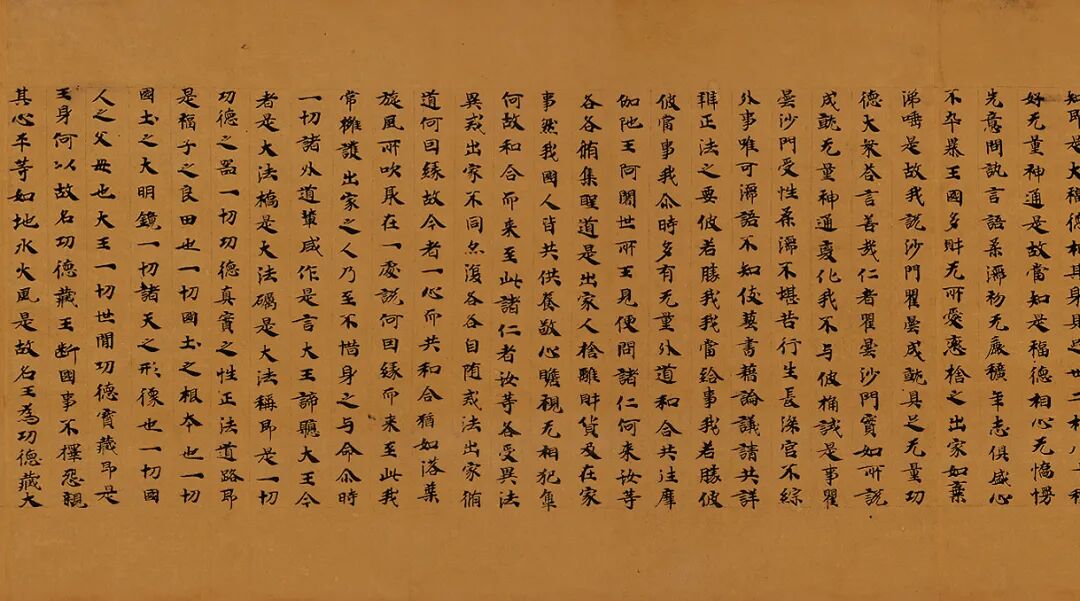 知耶是大福德相其身具足世二相八十種
好无量神通是故當知是福德相心无憍慢
先意問訊言語柔濡初无麁穬年志俱盛心
不卒暴王國多財无所愛戀捨之出家如棄
涕唾是故我說沙門瞿曇成就具之无量功
德大衆荅言善哉仁者瞿曇沙門實如所說
成就无量神通變化我不与彼桷試是事瞿
曇沙門受性柔濡不堪苦行生長深宮不綜
外事唯可濡語不知伎藝書藉論議請共詳
辯正法之要彼若勝我我當給事我若勝彼
彼當事我尒時多有无量外道和合共往摩
伽陁王阿闍世所王見便問諸仁何來汝等
各各脩集聖道是出家人捨離財貨及在家
事然我國人皆共供養敬心瞻視无相犯
何故和合而來至此諸仁者汝等各受異法
異戒出家不同亦復各各自随戒法出家脩
道何因緣故今者一心而共和合猶如落葉
旋風所吹聚在一處說何因緣而來至此我
常擁護出家之人乃至不惜身之与命尒時
一切諸外道輩咸作是言大王諦聽大王今
者是大法橋是大法礪是大法稱即是一切
功德之器一切功德真實之性正法道路即
是福子之良田也一切國土之根本也一切
國土之大明鏡一切諸天之形像也一切國
人之父母也大王一切世間功德寶藏即是
王身何以故名功德藏王断國事不擇惡親
其心平等如地水火風是故名王為功德藏大